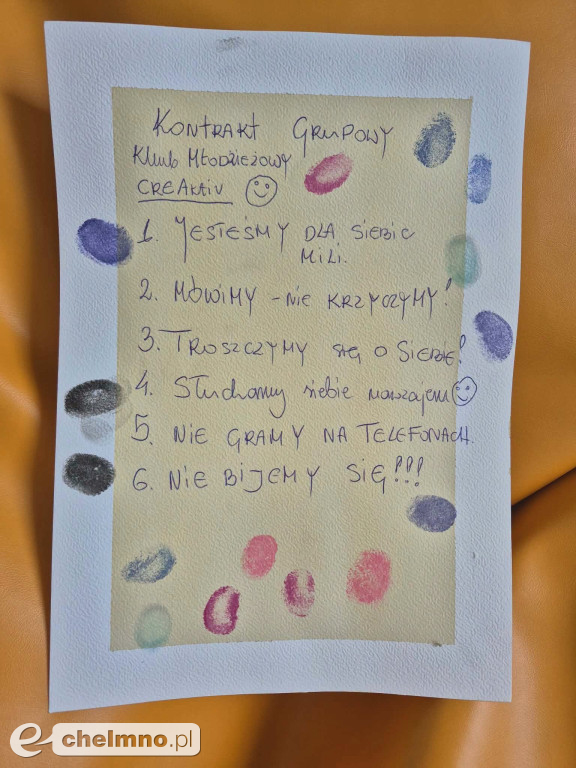 KONTRAKT GRUPOWY
KLUB MŁODZIEŻOWY
CREAKTIV
1. JESTEŚMY DLA SIEBIE
MILI.
2. MÓWIMY - NIE KRZYCZYMY!
3. TROSZCZYMY SIĘ O SIEBIE!
4. Słuchamy siebie nawzajem
5. NIE GRAMY NA TELEFONACH.
6. NIE BIJEMY SIĘ!!!
e-chelmno.pl